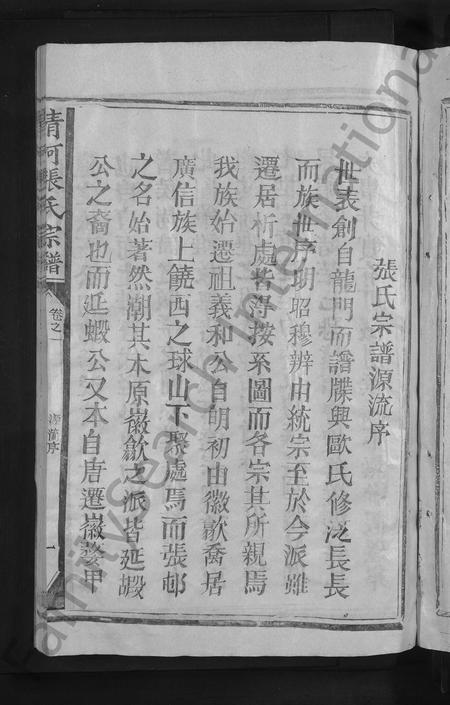 張氏宗譜源流序
世表創自龍門而譜牒興歐氏修泛長長
而族世序明昭穆辨由統宗至於今派雖
遷居析處皆得按系圖而各宗其所親焉
我族始遷祖義和公自明初由徽歙喬居
廣信族上饒西之球山下聚處焉而張邨
之名始著然溯其木原徽歙之派皆延嘏
公之裔也而延蝦公又本自唐遷徽婺甲
清河張氏宗譜
卷之一
源流序
一
FamilySearch International